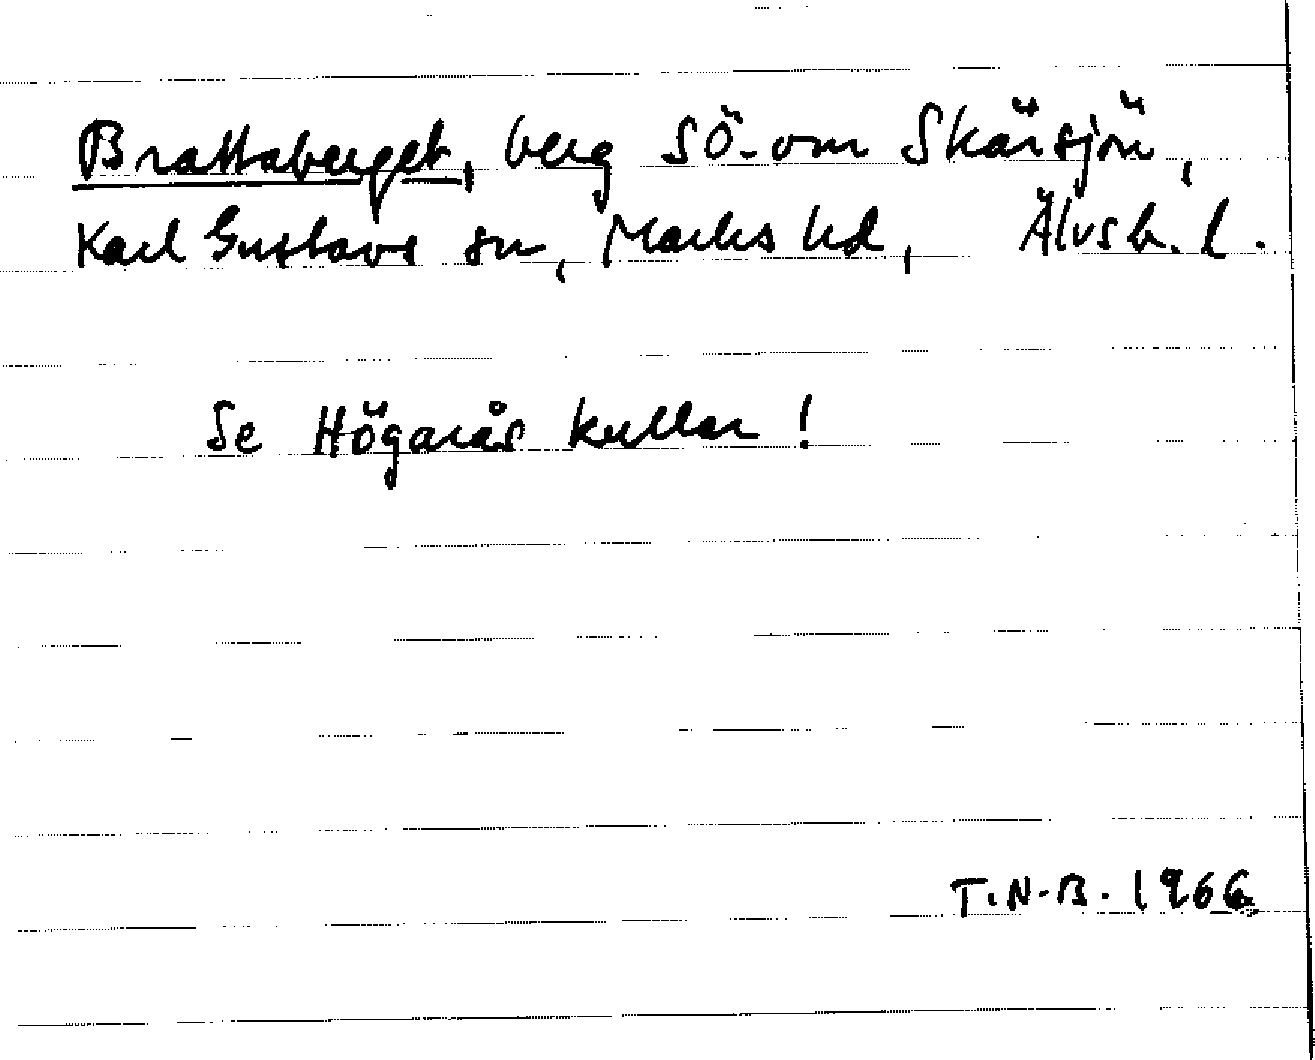 Brattaberget, berg SÖ. om Skärsjön,
Karl Gustavs sn, Marks hd, Älvsb. l.
Se Högarås kullar!
T.N-B. 1966